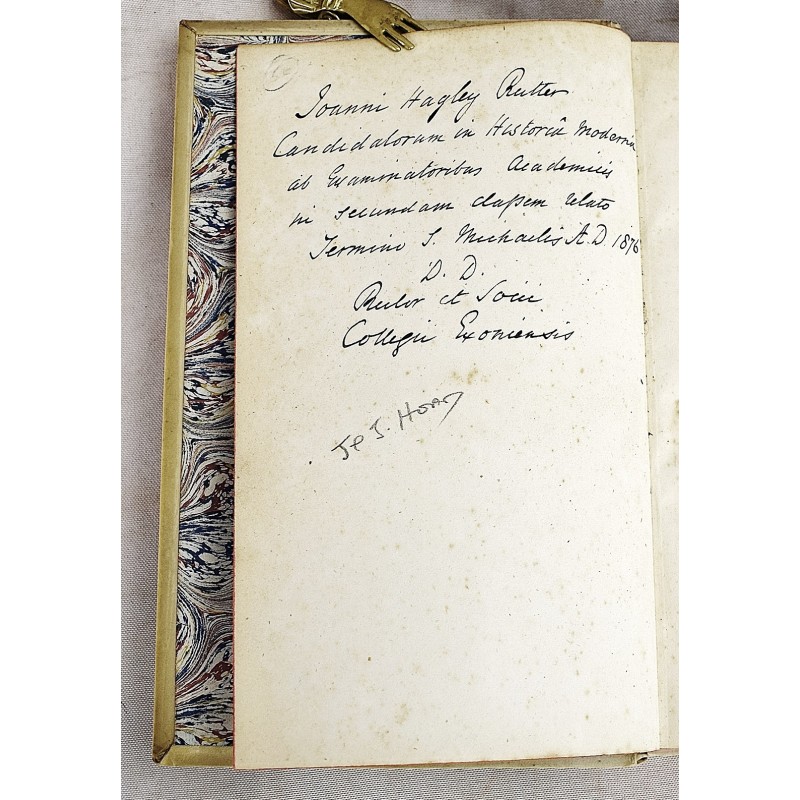 Joanni Hagley Rutter
Candidatorum in Historiâ Modernâ
ab Examinatoribus Academicis
in secundam claſsem relato
Termino S. Michaelis A.D. 1876
D. D.
Rector et Socii
Collegii Exoniensis